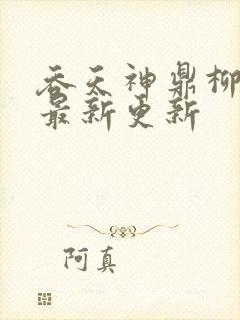 吞天神鼎柳
最新更新
阿真